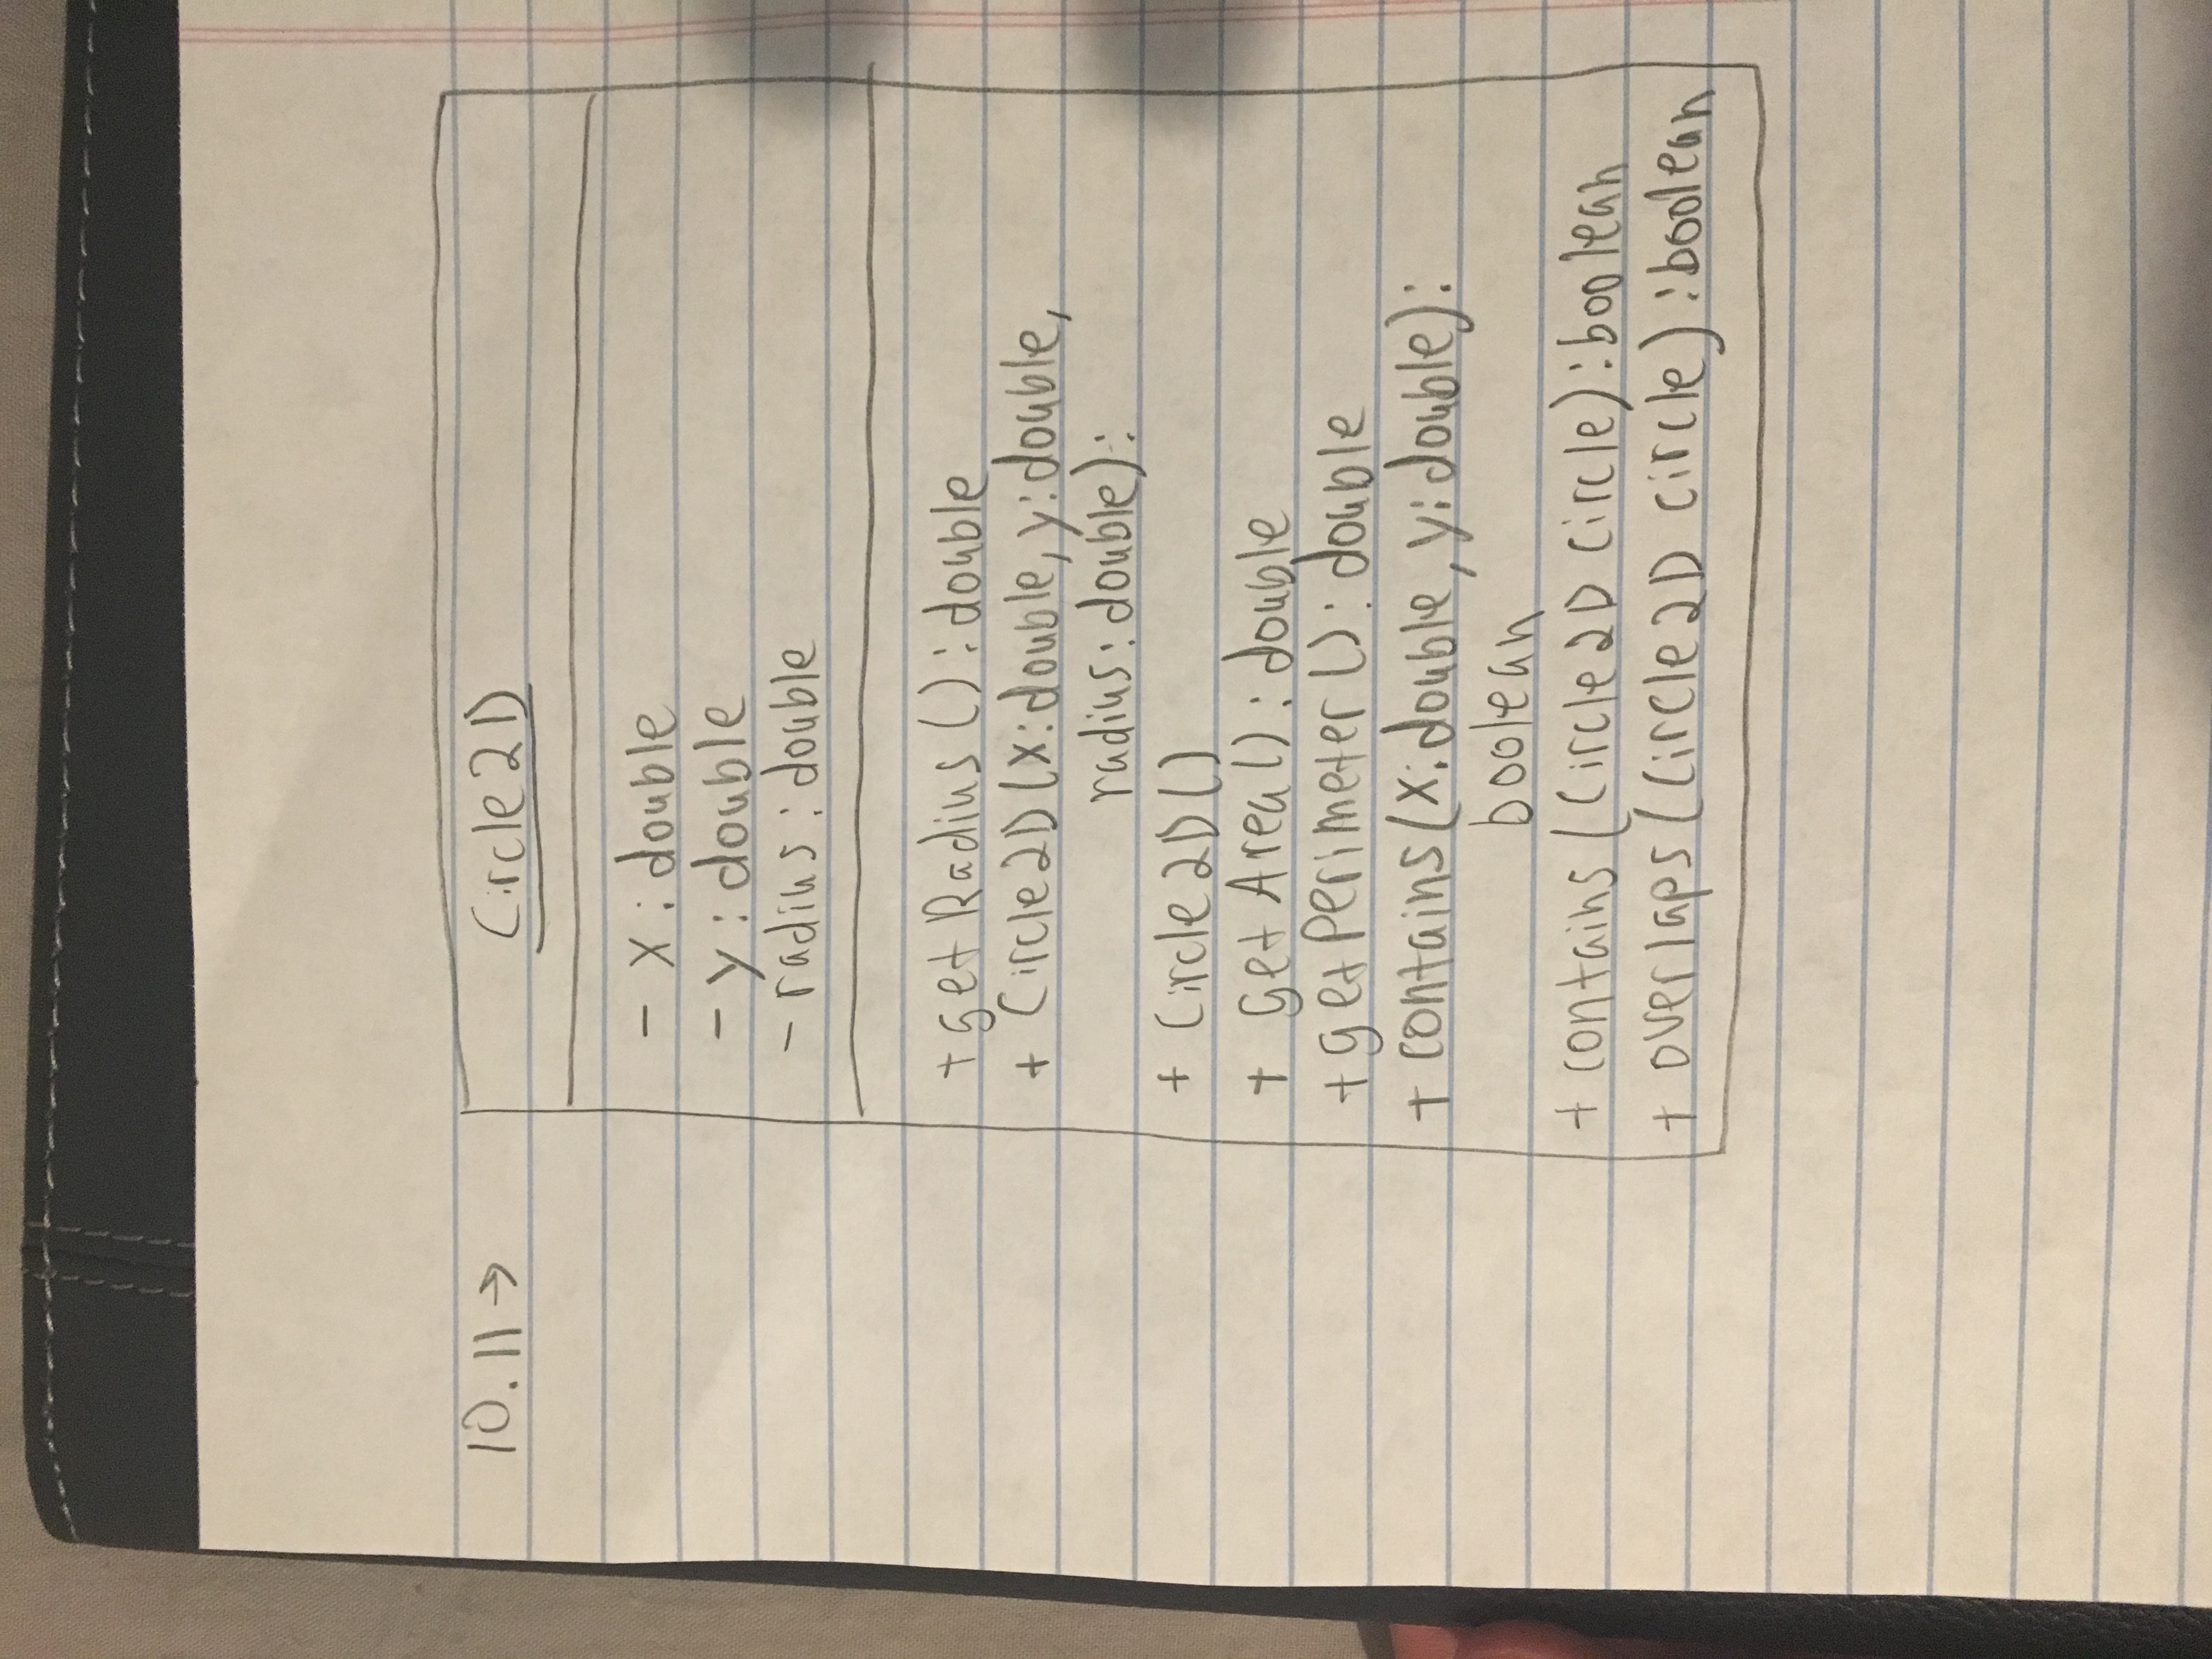 10.11 →
Circle2D
- x : double
- y : double
- radius : double
+ getRadius () : double
+ Circle2D(x:double, y:double,
radius:double):
+ Circle2D()
+ getArea() : double
+ getPerimeter() : double
+ contains(x:double, y:double):
boolean
+ contains(Circle2D circle):boolean
+ overlaps(Circle2D circle):boolean